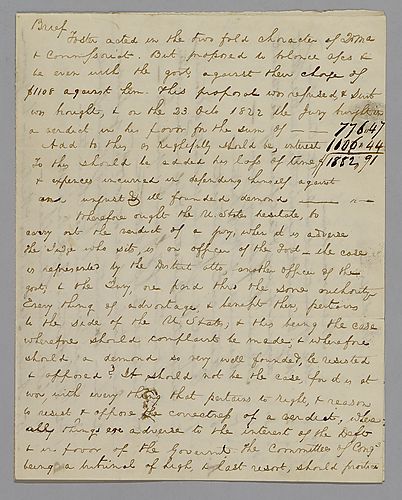 Brief
Foster acted in the two fold character of Forma
& Commissariat. But proposed to balance a/cs &
be even with the govt, against their charge of
$1108 against him. this proposal was refused & Suit
was brought, & on the 23 Octo 1822 the Jury brought in
a verdict in his favor for the sum of — — 776.47
Add to this, as rightfully should be, interest 1106.44
To this should be added his loss of time, 1882,91
& expences incurred in defending himself against
an unjust & ill founded demand —— " —
Wherefore ought the U. States hesitate, to
carry out the verdict of a jury, when it is adverse
the Judge who sits, is an officer of the Govt — the case
is represented by the District Atto, another officer of the
govt, & the Jury, are paid thro the same authority
Every thing of advantage, & benefit thus, pertains
to the side of the U. States, & this being the case
wherefore should complaint be made, & wherefore
should a demand so very well founded, be resisted
& opposed? It should not be the case for it is at
war with every thing that pertains to right, & reason
to resist & oppose the correctness of a verdict, where
all things are adverse to the interest of the Deft
& in favor of the Governmt. the Committee of Congs
being a tribunal of high, & last resort, should protect